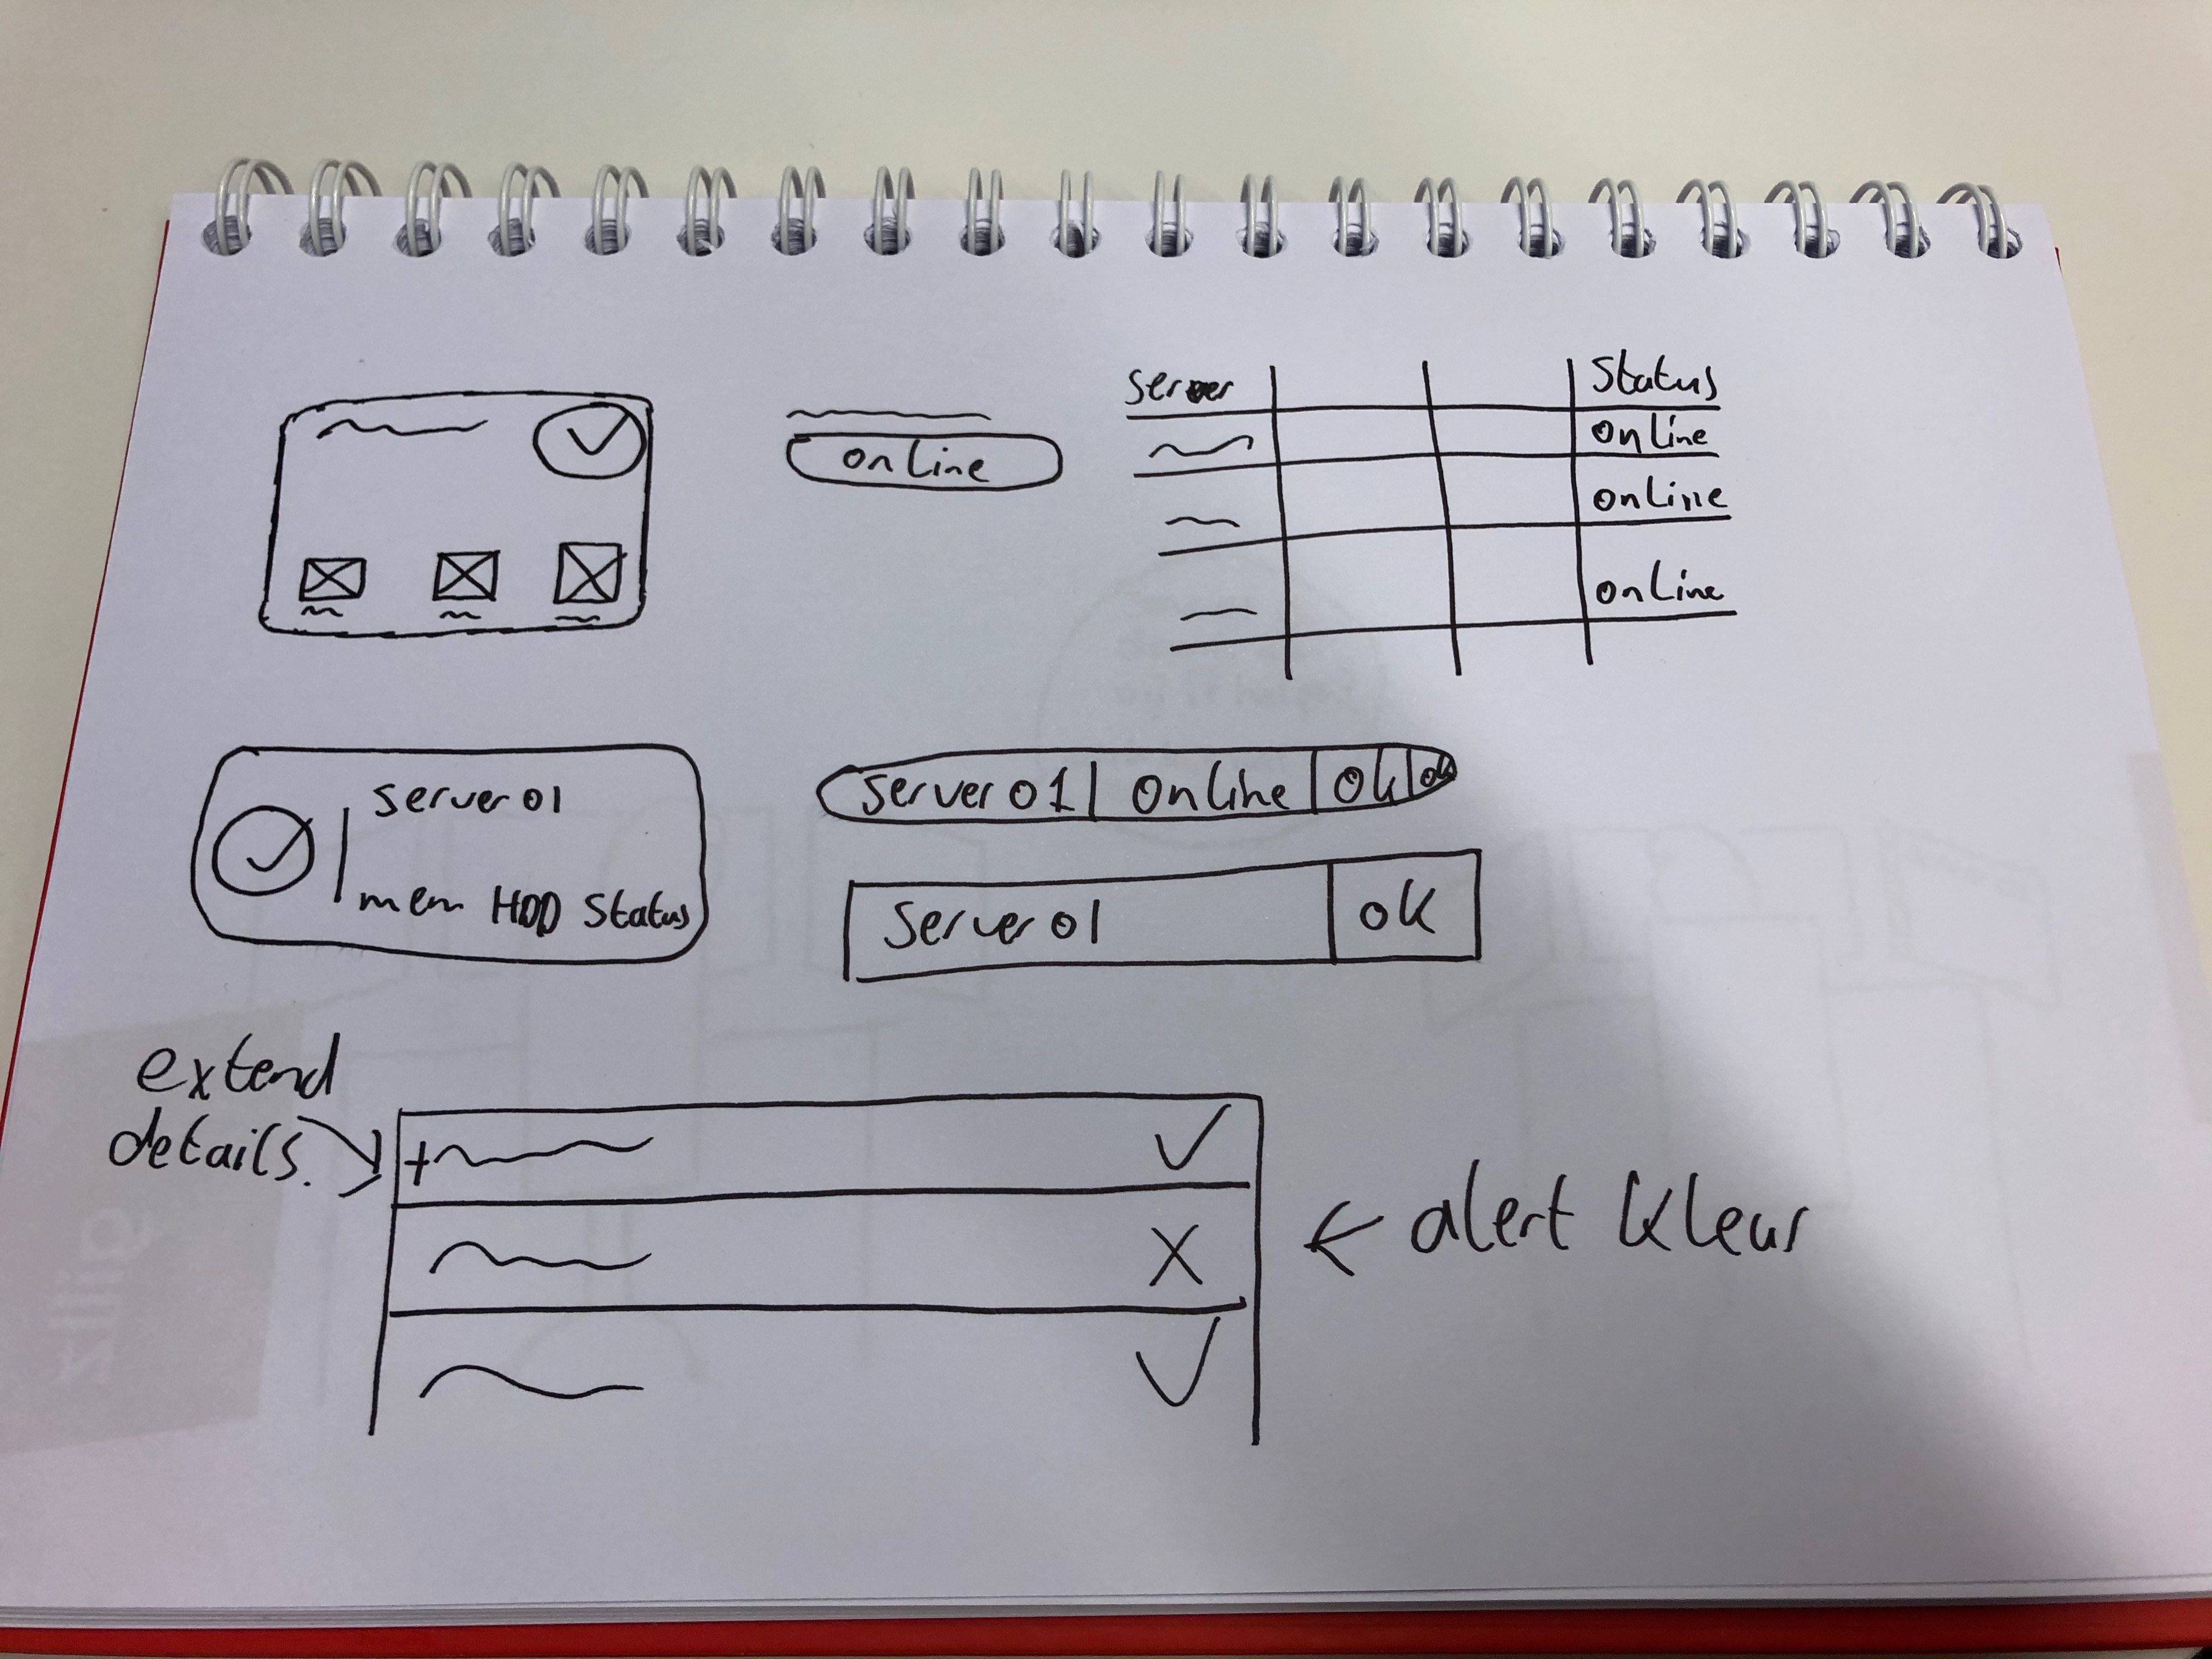 server
Status
online
online
online
online
server 01
mem HDD Status
server 01
online
ok
ok
server 01
ok
extend
details.
alert kleur